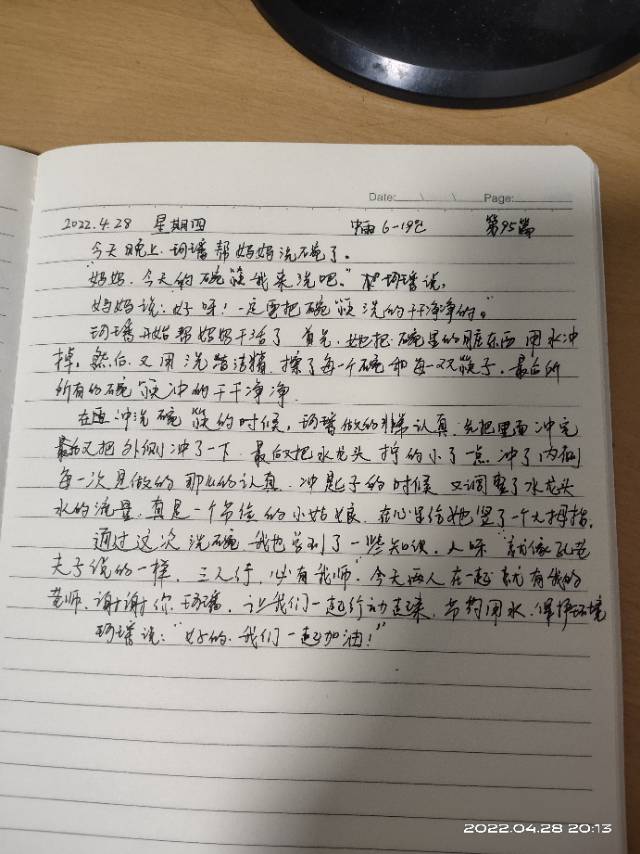 Date: \ \ Page:
2022.4.28 星期四 中雨 6-19℃ 第95篇
今天晚上.珂瑶帮妈妈洗碗了。
"妈妈.今天的碗筷我来洗吧。"珂瑶说.
妈妈说:好呀!一定要把碗筷洗的干干净净的。"
珂瑶开始帮妈妈干活了.首先,她把碗里的脏东西用水冲
掉,然后又用洗洁精擦了每一个碗和每一双筷子,最后所
所有的碗筷冲的干干净净.
在冲洗碗筷的时候,珂瑶做的非常认真.先把里面冲完
最后又把外侧冲了一下.最后又把水龙头拧的小了一点.冲了内侧
每一次是做的那么的认真.冲匙子的时候又调整了水龙头
水的流量.真是一个节俭的小姑娘.在心里给她竖了一个大拇指.
通过这次洗碗.我也学到了一些知识.就像孔老
夫子说的一样,三人行,必有我师.今天两人在一起就有我的
老师.谢谢你.珂瑶.让我们一起行动起来.节约用水.保护环境
珂瑶说:"好的.我们一起加油!"
2022.04.28 20:13